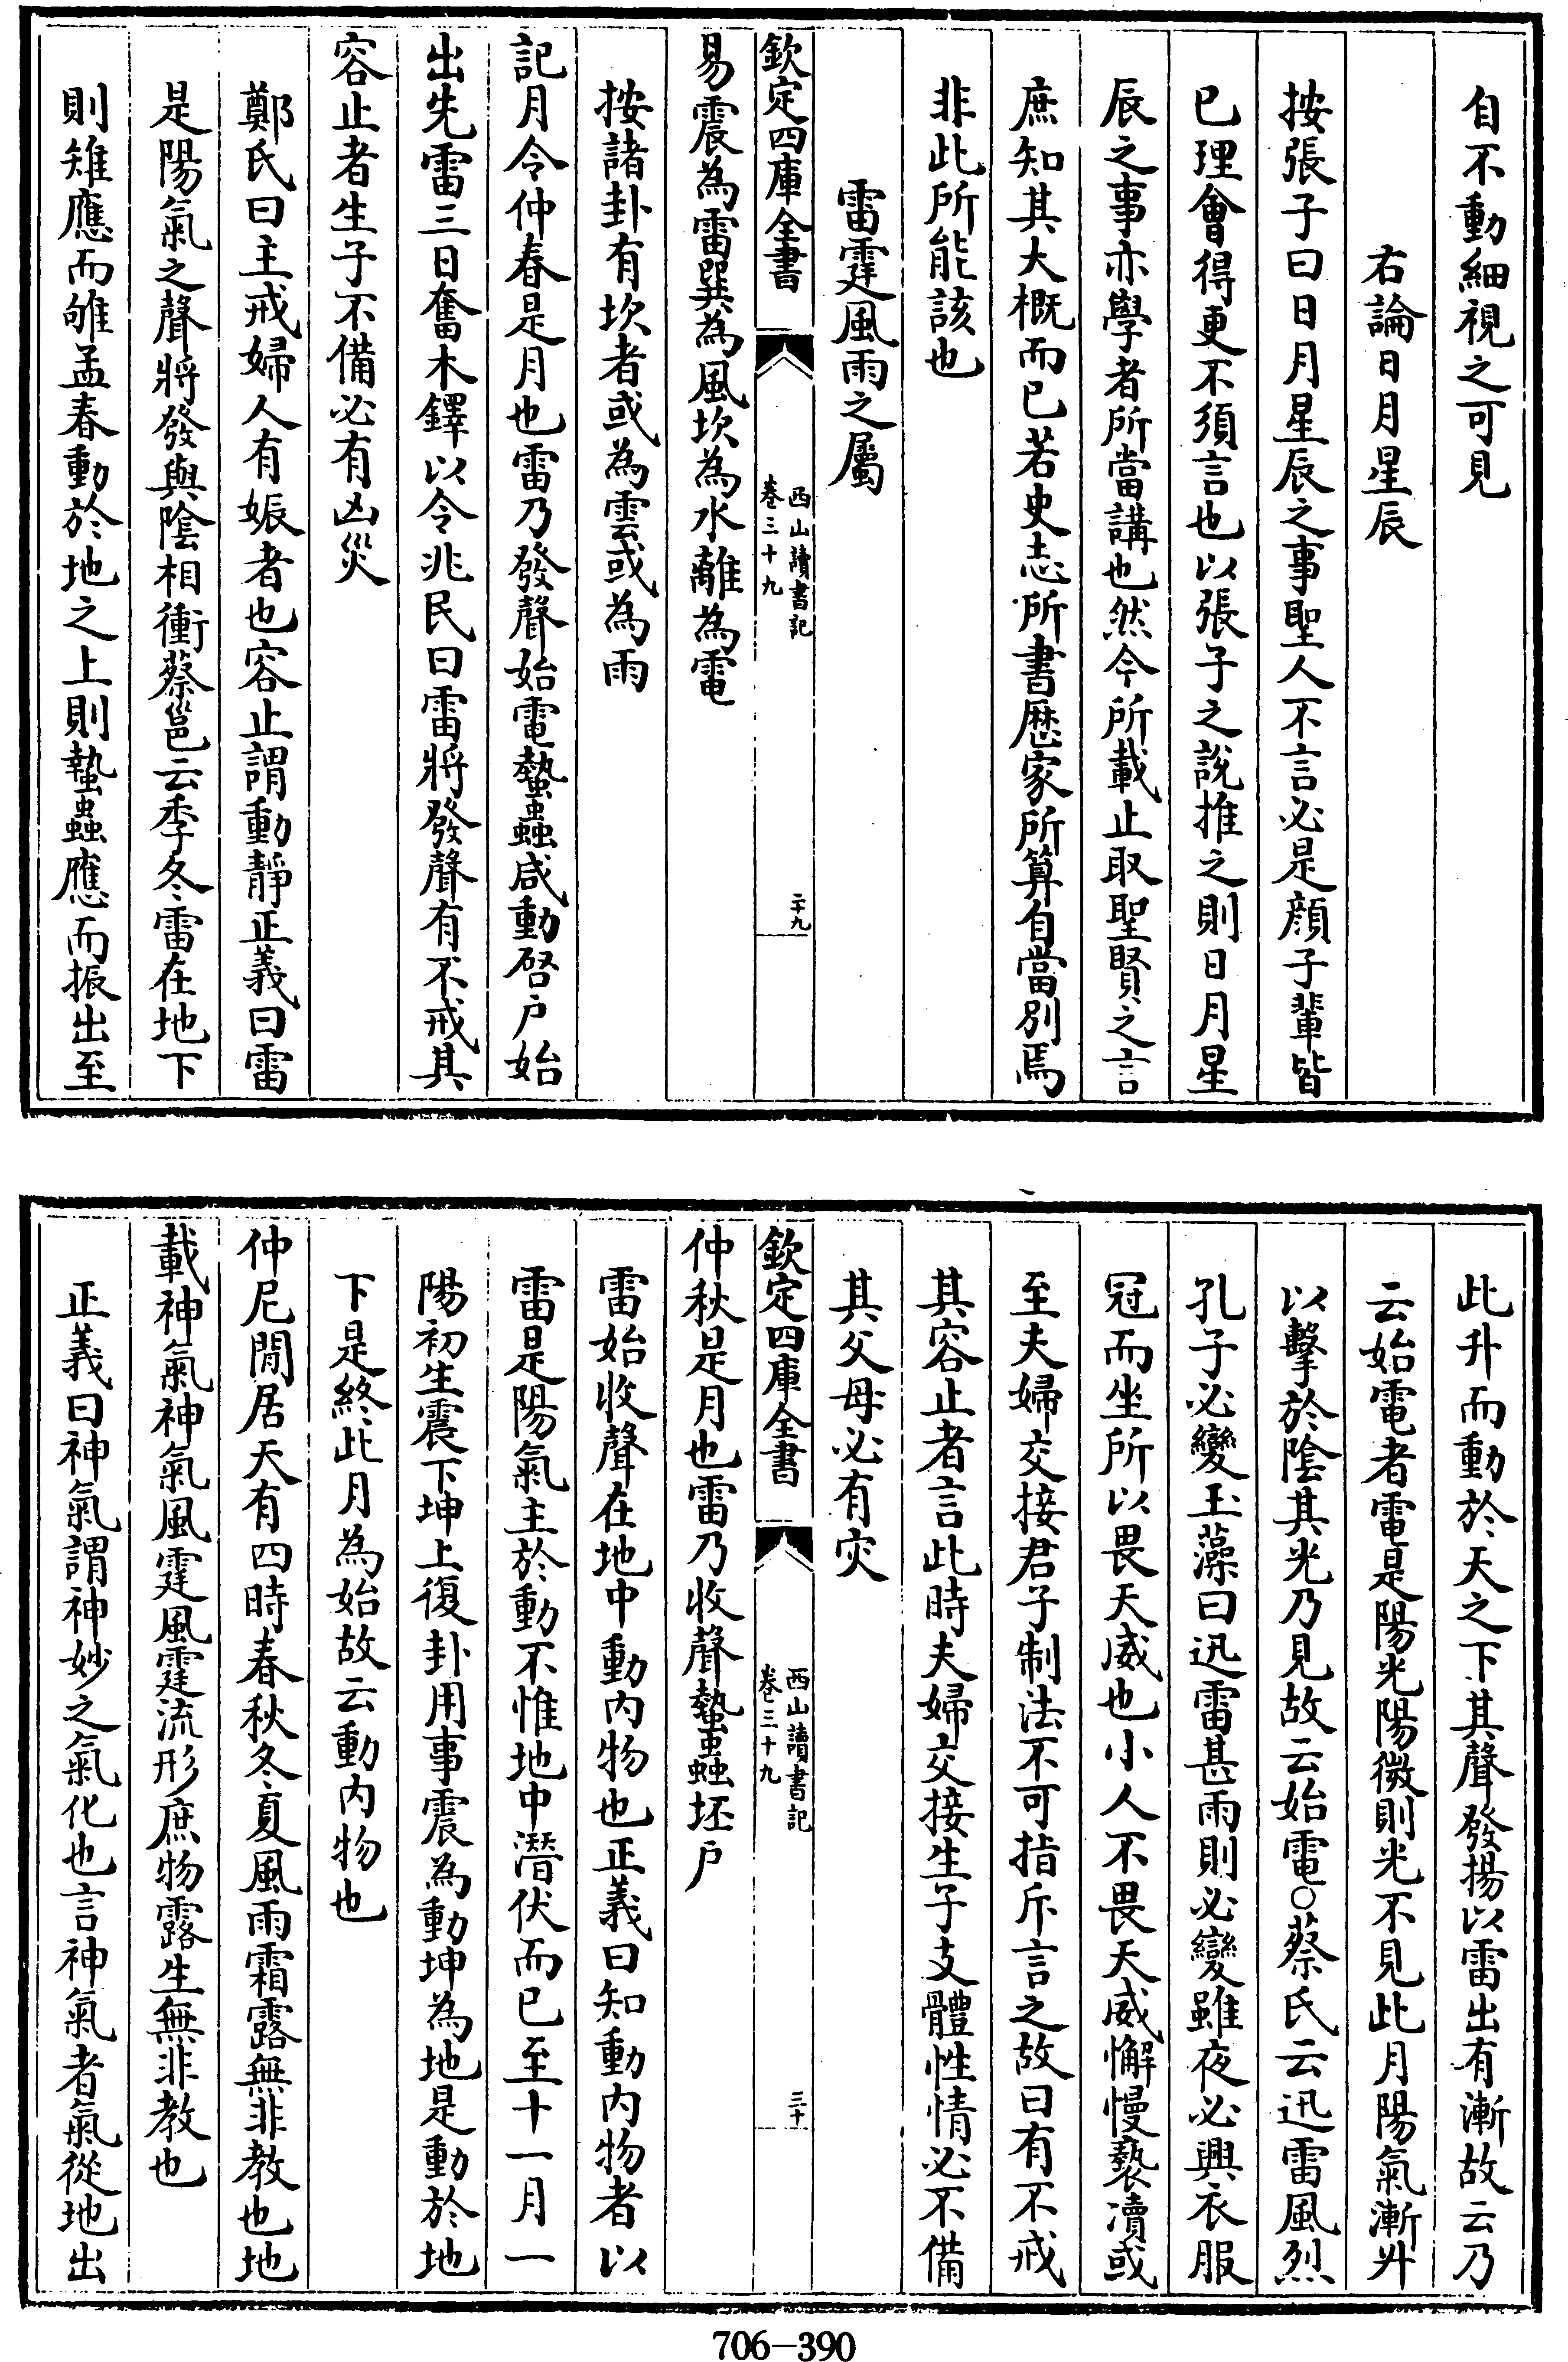 自不動細視之可見
右論日月星辰
按張子曰日月星辰之事聖人不言必是顔子輩皆
已理會得更不須言也以張子之說推之則日月星
辰之事亦學者所當講也然今所載止取聖賢之言
庶知其大概而已若史志所書厯家所算自當别焉
非此所能該也
雷霆風雨之屬
欽定四庫全書
西山讀書記
卷三十九
二十九
易震為雷巽為風坎為水離為電
按諸卦有坎者或為雲或為雨
記月令仲春是月也雷乃發聲始電蟄蟲咸動啓户始
出先雷三日奮木鐸以令兆民曰雷將發聲有不戒其
容止者生子不備必有凶災
鄭氏曰主戒婦人有娠者也容止謂動靜正義曰雷
是陽氣之聲將發與陰相衝蔡邕云季冬雷在地下
則雉應而雊孟春動於地之上則蟄蟲應而振出至
此升而動於天之下其聲發揚以雷出有漸故云乃
云始電者電是陽光陽微則光不見此月陽氣漸升
以擊於陰其光乃見故云始電○蔡氏云迅雷風烈
孔子必變玉藻曰迅雷甚雨則必變雖夜必興衣服
冠而坐所以畏天威也小人不畏天威懈慢褻瀆或
至夫婦交接君子制法不可指斥言之故曰有不戒
其容止者言此時夫婦交接生子支體性情必不備
其父母必有灾
欽定四庫全書
西山讀書記
卷三十九
三十
仲秋是月也雷乃收聲蟄蟲坯户
雷始收聲在地中動内物也正義曰知動内物者以
雷是陽氣主於動不惟地中潛伏而已至十一月一
陽初生震下坤上復卦用事震為動坤為地是動於地
下是終此月為始故云動内物也
仲尼閒居天有四時春秋冬夏風雨霜露無非教也地
載神氣神氣風霆風霆流形庶物露生無非教也
正義曰神氣謂神妙之氣化也言神氣者氣從地出
706-390